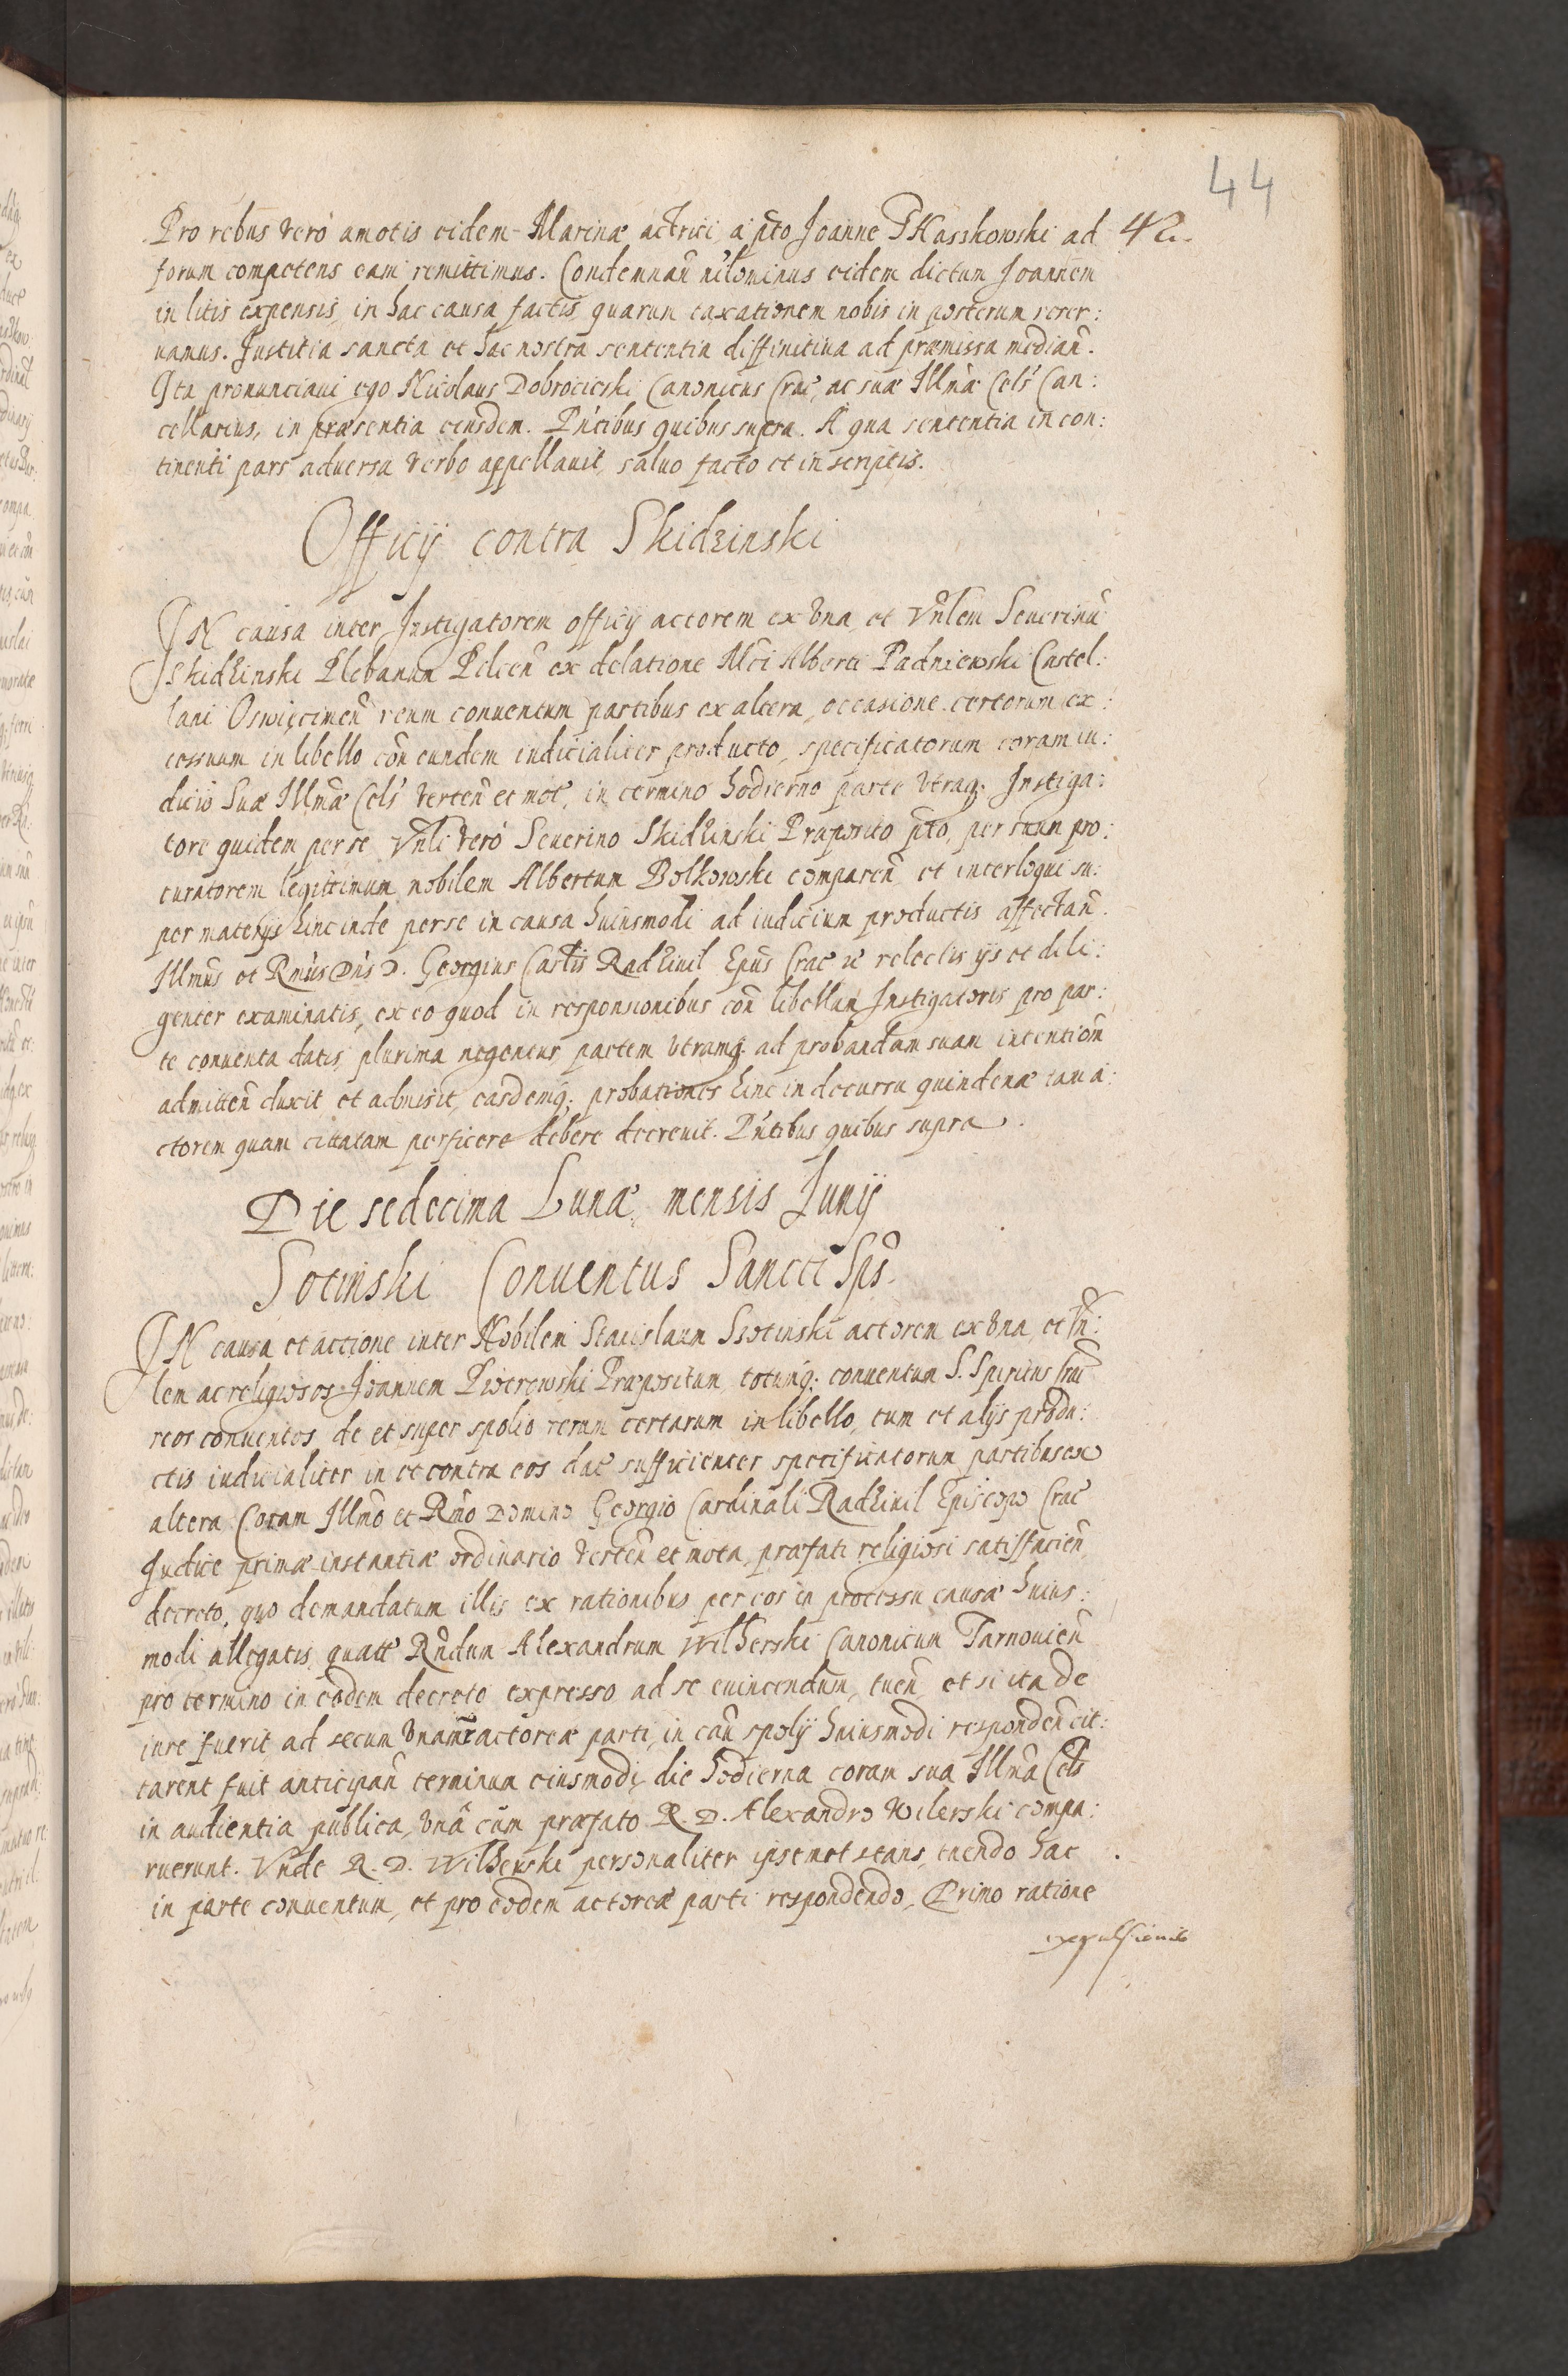 44
Pro rebus verò amotis eidem Marinæ actrici, a pto Joanne Tkasskowski ad 42.
forum competens eam remittimus. Condemnan̄ nilominus eidem dictum Joannem
in litis expensis, in hac causa factis, quarum taxationem nobis in posterum reser:
uamus. Justitia sancta et hac nostra sententia diffinitiua ad præmissa median̄.
Ita pronunciaui ego Nicolaus Dobrocieski Canonicus Crac̄, ac suæ Illmæ Cels Can:
cellarius, in præsentia eiusdem. Pñtibus quibus supra. A qua sententia in con:
tinenti pars aduersa verbo appellauit, saluo facto et in scriptis.
Officij contra Skidzinski
IN causa inter Instigatorem officij actorem ex vna, et Vnlem Seuerinū
Skidzinski Plebanum Pelcen̄ ex delatione Mci Alberti Padniewski Castel:
lani Oswięcimen̄ reum conuentum partibus ex altera, occasione certorum ex:
cessuum in libello con̄ eundem iudicialiter producto, specificatorum coram iu:
dicio Suæ Illmæ Cels verten̄ et mot̄, in termino hodierno parte vtraq; Instiga:
tore quidem per se Vnli verò Seuerino Skidzinski Præposito pto, per suum pro:
curatorem legittimum nobilem Albertum Bolkowski comparen̄ et interloqui su:
per materijs hinc inde per se in causa huiusmodi ad iudicium productis affectan̄.
Illmus et Rmus Dnus D. Georgius Cardlis Radziuil Epus Crac̄ relectis ijs et dili:
genter examinatis, ex eo quod in responsionibus con̄ libellum Instigatoris pro par:
te conuenta datis, plurima negentur, partem vtramq; ad probandam suam intention̄
admitten̄ duxit et admisit, easdemq; probationes hinc in decursu quindenæ tam a:
ctorem quam citatam perficere debere decreuit. Pñtibus quibus supra.
Die sedecima Lunæ, mensis Junij
Socinski Conuentus Sancti Sps.
IN causa et actione inter Nobilem Stanislaum Ssocinski actorem ex vna, et Vn:
lem ac religiosos Joannem Piotrowski Præpositum, totumq; conuentum S. Spiritus Crac̄
reos conuentos de et super spolio rerum certarum in libello, tum et alijs produ:
ctis iudicialiter in et contra eos dat̄ sufficienter specificatorum partibus ex
altera Coram Illmo et Rmo Domino Georgio Cardinali Radziuil Episcopo Crac̄
Judice primæ instantiæ ordinario verten̄ et mota, præfati religiosi satisfacien̄
decreto, quo demandatum illis ex rationibus per eos in processu causæ huius:
modi allegatis, quatt̄ Rndum Alexandrum Wilherski Canonicum Tarnouien̄
pro termino in eodem decreto expresso ad se euincendum, tuen̄ et si ita de
iure fuerit, ad secum vnam actoreæ parti, in cau̅ spolij huiusmodi responden̄ cit:
tarent fuit anticipan̄ terminum eiusmodi, die hodierna coram sua Illma Cels
in audientia publica, vna cum præfato R. D. Alexandro Wilerski compa:
ruerunt. Vnde R. D. Wilherski personaliter ipsemet stans, tuendo hac
in parte conuentum, et pro eodem actoreæ parti respondendo, Primo ratione
expulsionis